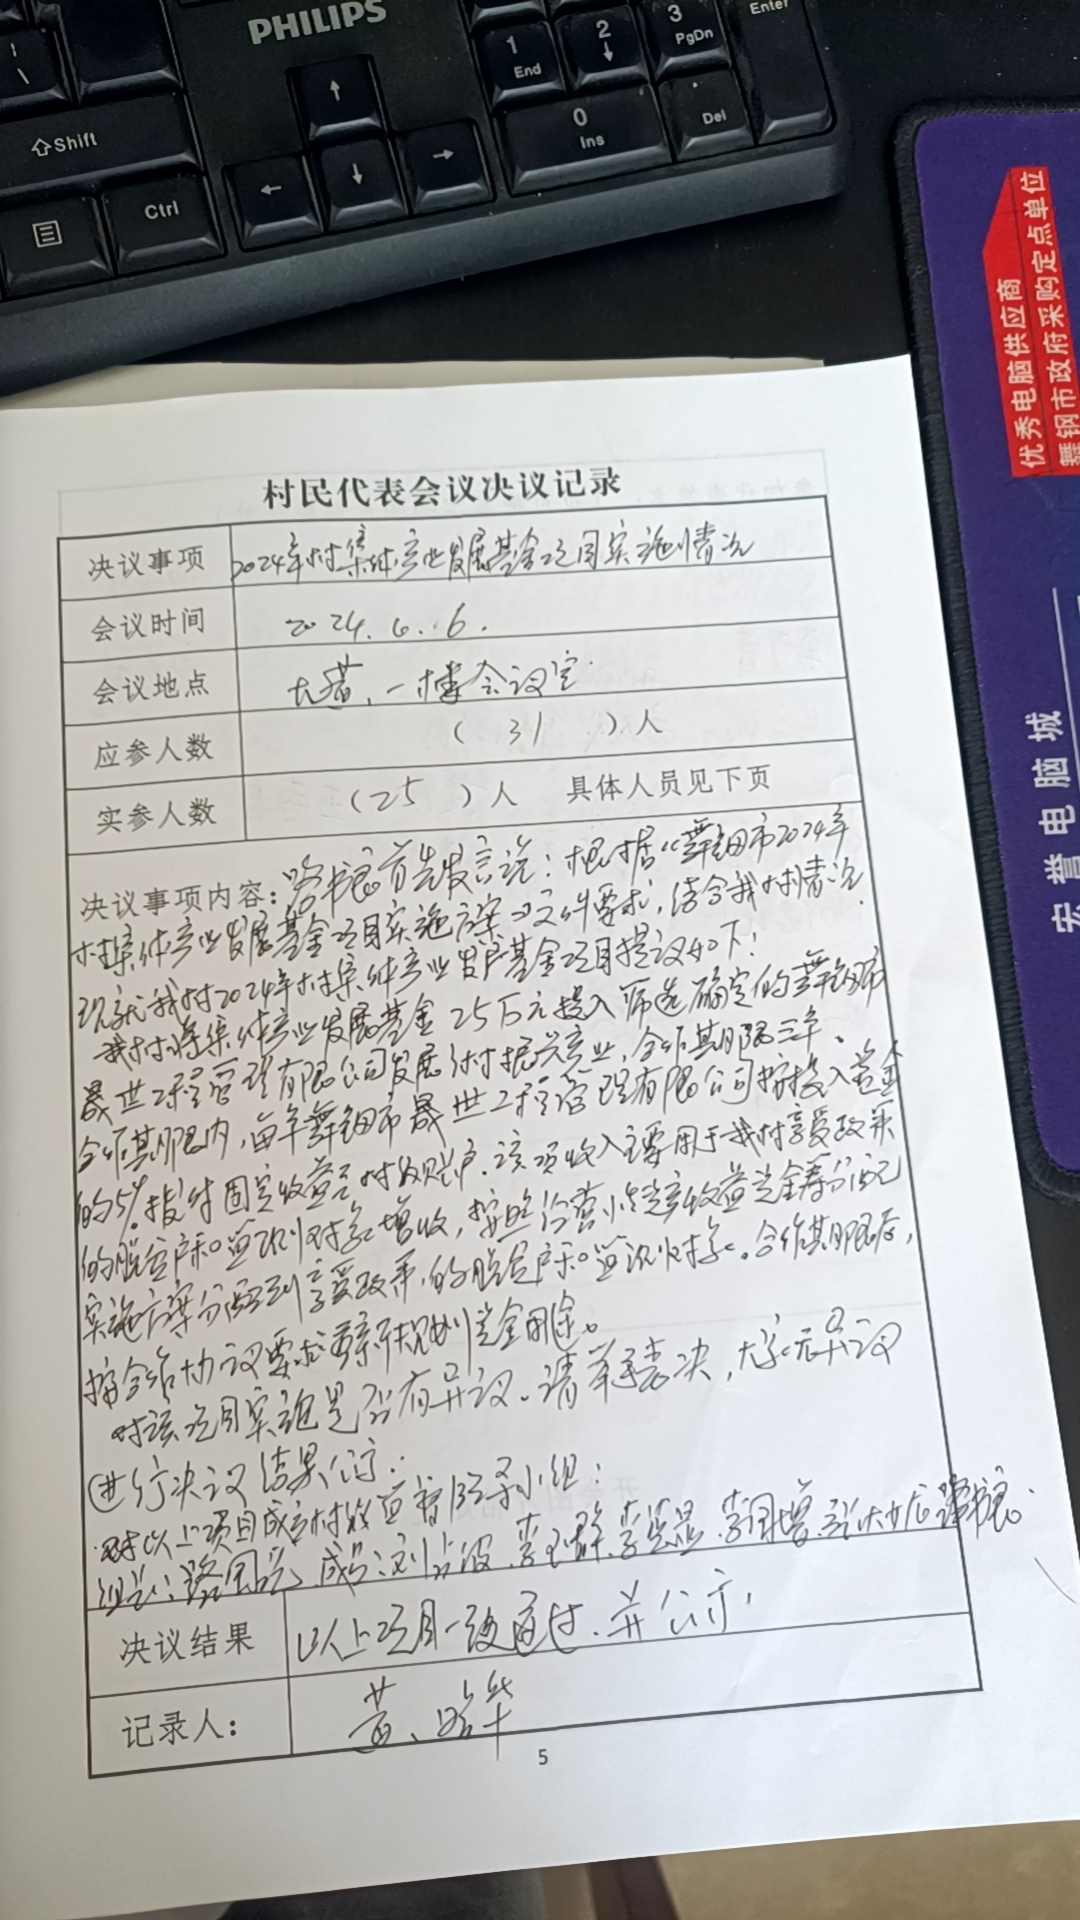 PHILIPS
1
End
2
↓
3
PgDn
Enter
\
⇧Shift
↑
0
Ins
.
Del
Ctrl
←
↓
→
优秀电脑供应商
舞钢市政府采购定点单位
宏誉电脑城
村民代表会议决议记录
决议事项 2024年村集体产业发展基金项目实施情况
会议时间 2024.6.6.
会议地点 一楼会议室
应参人数 (31)人
实参人数 (25)人 具体人员见下页
决议事项内容:路书记首先发言说:根据《舞钢市2024年
村集体产业发展基金项目实施方案》文件要求,结合我村情况
现就我村2024年村集体产业发展基金项目提议如下:
我村将集体产业发展基金25万元投入筛选确定的舞钢市
晟世工程管理有限公司发展乡村振兴产业,合作期限三年。
合作期限内,每年舞钢市晟世工程管理有限公司按投入资金
的5%拨付固定收益至村级账户.该项收入主要用于我村享受政策
的脱贫户和监测对象增收,按照经营性资产收益资金分配
实施方案分配到享受政策的脱贫户和监测对象。合作期限后,
按合作协议要求重新规划资金用途。
对该项目实施是否有异议.请举手表决,大家无异议
进行决议结果公示.
对以上项目成立村级监督领导小组:
组长:路 成员:刘占波、李 李 李
决议结果 以上项目一致通过.并公示,
记录人: 黄
5